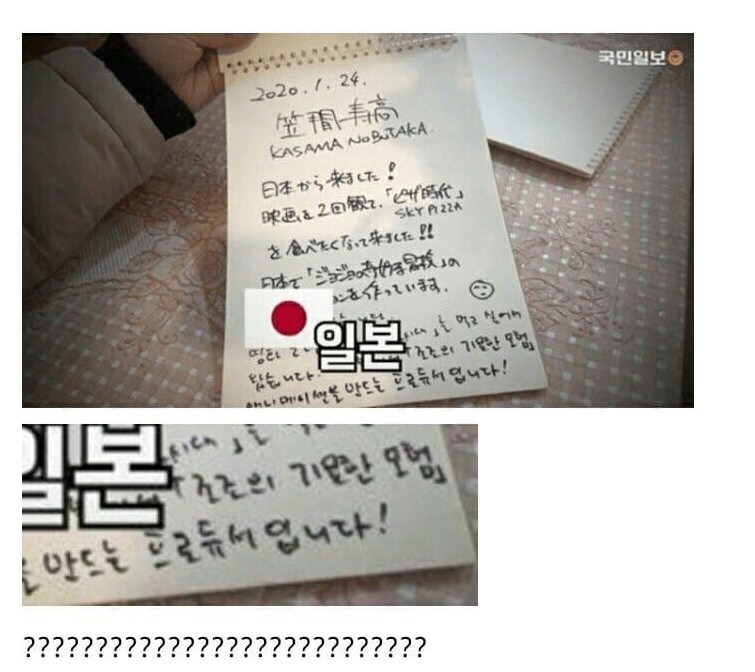 국민일보
2020.1.24.
笠間寿高
KASAMA NoBUTAKA.
日本から来ました!
映画を2回観て、「ピザ時代」
SKY PIZZA
を食べたくなって来ました!!
日本で「ジョジョの奇妙な冒険」の
ンを作っています。
시대」를 먹고 싶어서
일본
왔습니다. 「조조의 기묘한 모험」
애니메이션을 만드는 프로듀서입니다!
일본
「조조의 기묘한 모험」
을 만드는 프로듀서입니다!
????????????????????????????